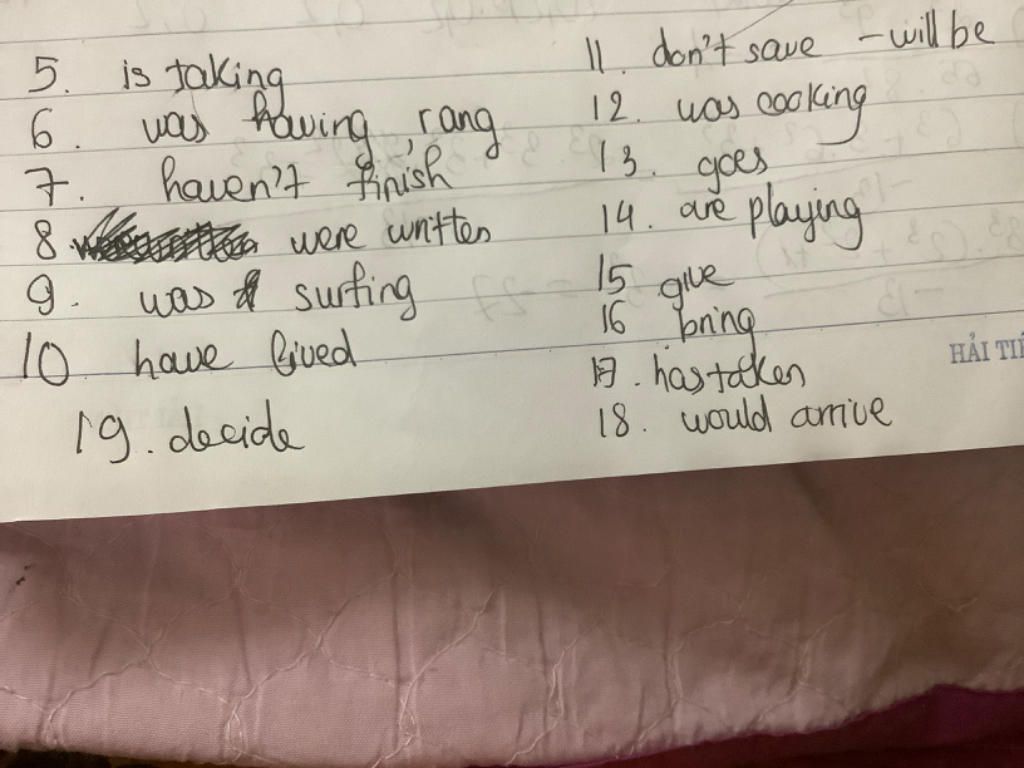 5. is taking
6. was having, rang
7. haven't finish
8 were written
9. was surfing
10 have lived
19. decide
11. don't save - will be
12. was cooking
13. goes
14. are playing
15 give
16 bring
17. has taken
18. would arrive
HẢI TIẾ